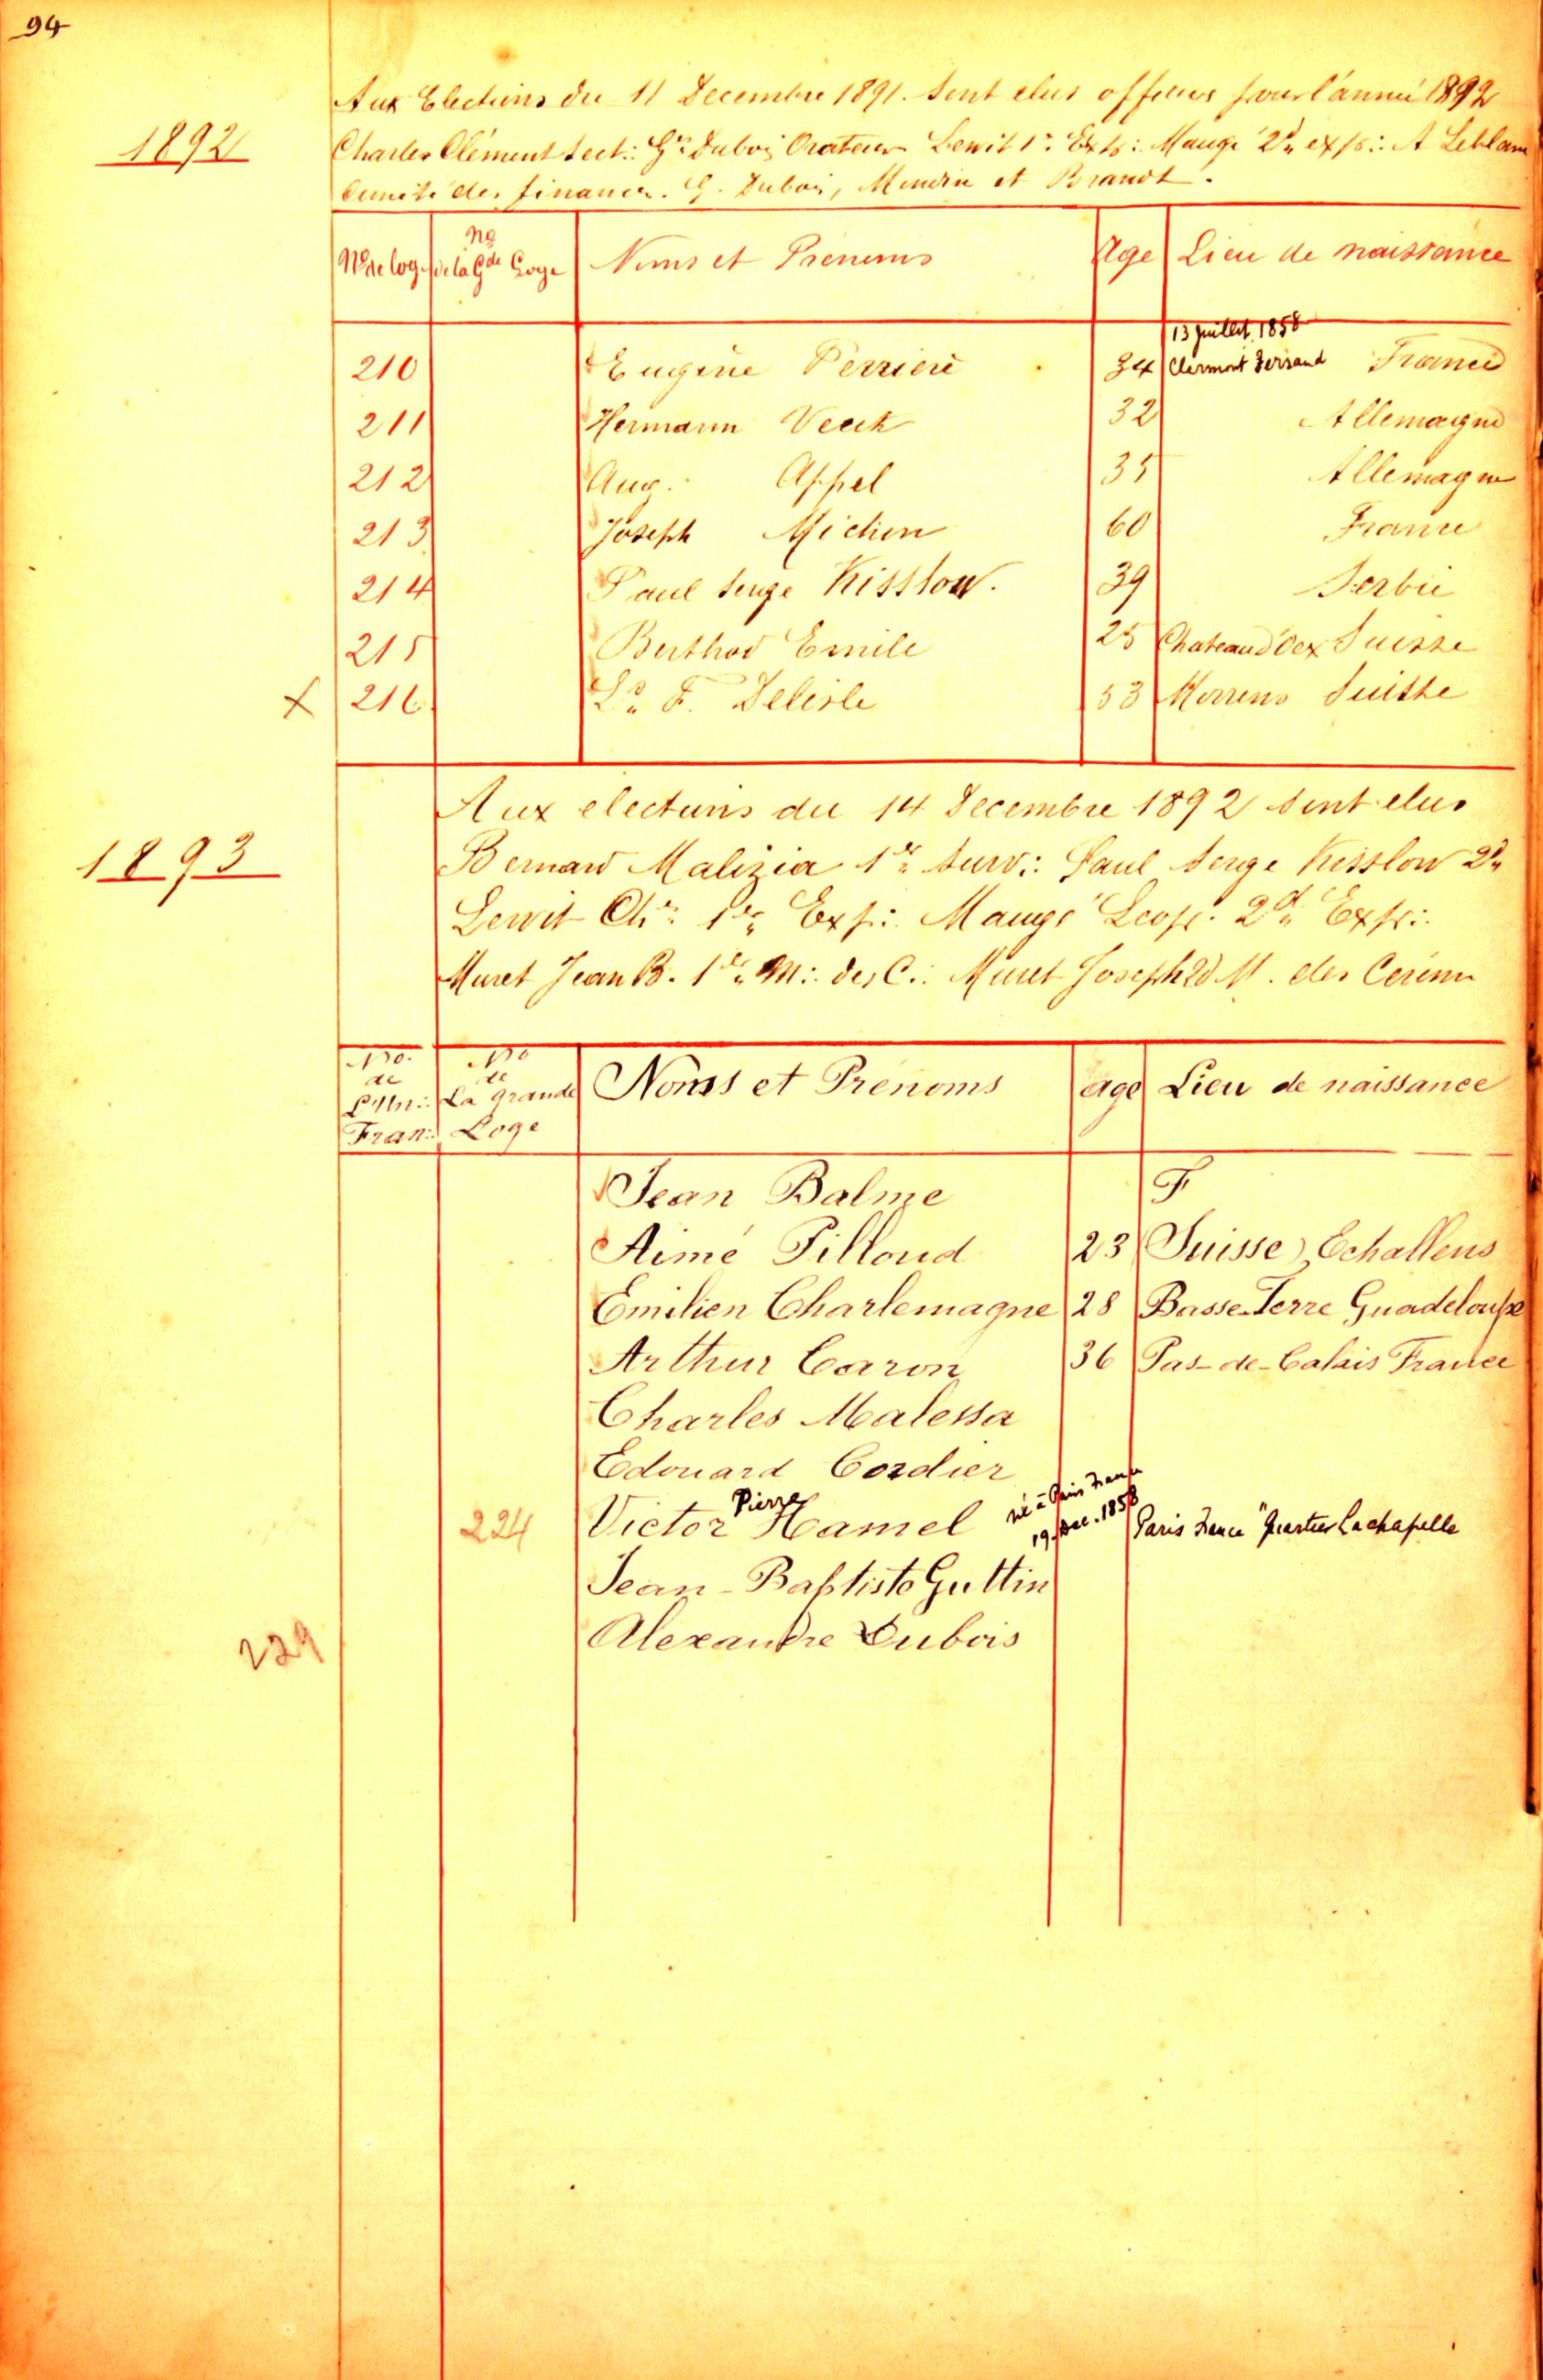 94
1892
Aux Elections du 11 Decembre 1891. sont elus officiers pour l'année 1892
Charles Clément Sect∴ Gve Dubois Orateur Lewit 1r Exp∴ Mangé 2d exp∴ A Leblanc
Comité des finances. G. Dubois, Mondin et Brandt.
No de log. No de la Gde Loge Noms et Prenoms Age Lieu de naissance
13 juillet 1858
210 Eugène Perriere 34 Clermont Ferrand France
211 Hermann Veeck 32 Allemagne
212 Aug. Appel 35 Allemagne
213 Joseph Michon 60 France
214 Paul Serge Kisslow. 39 Serbie
215 Berthod Emile 25 Chateaud'Oex Suisse
X 216 Ls F. Delisle 53 Morrens Suisse
1893
Aux elections du 14 Decembre 1892 sont elus
Bernard Malizia 1er Surv∴ Paul Serge Kisslow 2d
Lewit Chs 1er Exp∴ Mangé Leop. 2d Exp∴
Muret Jean B. 1er M∴ des C∴ Muret Joseph 2d M. des Cerem
No. de No de Noms et Prenoms age Lieu de naissance
la grande
Fran∴ Loge
Jean Balme F
Aimé Pilloud 23 Suisse, Echallens
Emilien Charlemagne 28 Basse-Terre Guadeloupe
Arthur Caron 36 Pas-de-Calais France
Charles Malessa
Edouard Cordier
224 Victor Pierre Hamel né à Paris France 19 Dec. 1858 Paris France "Quartier Lachapelle
Jean-Baptiste Guttin
Alexandre Dubois
229